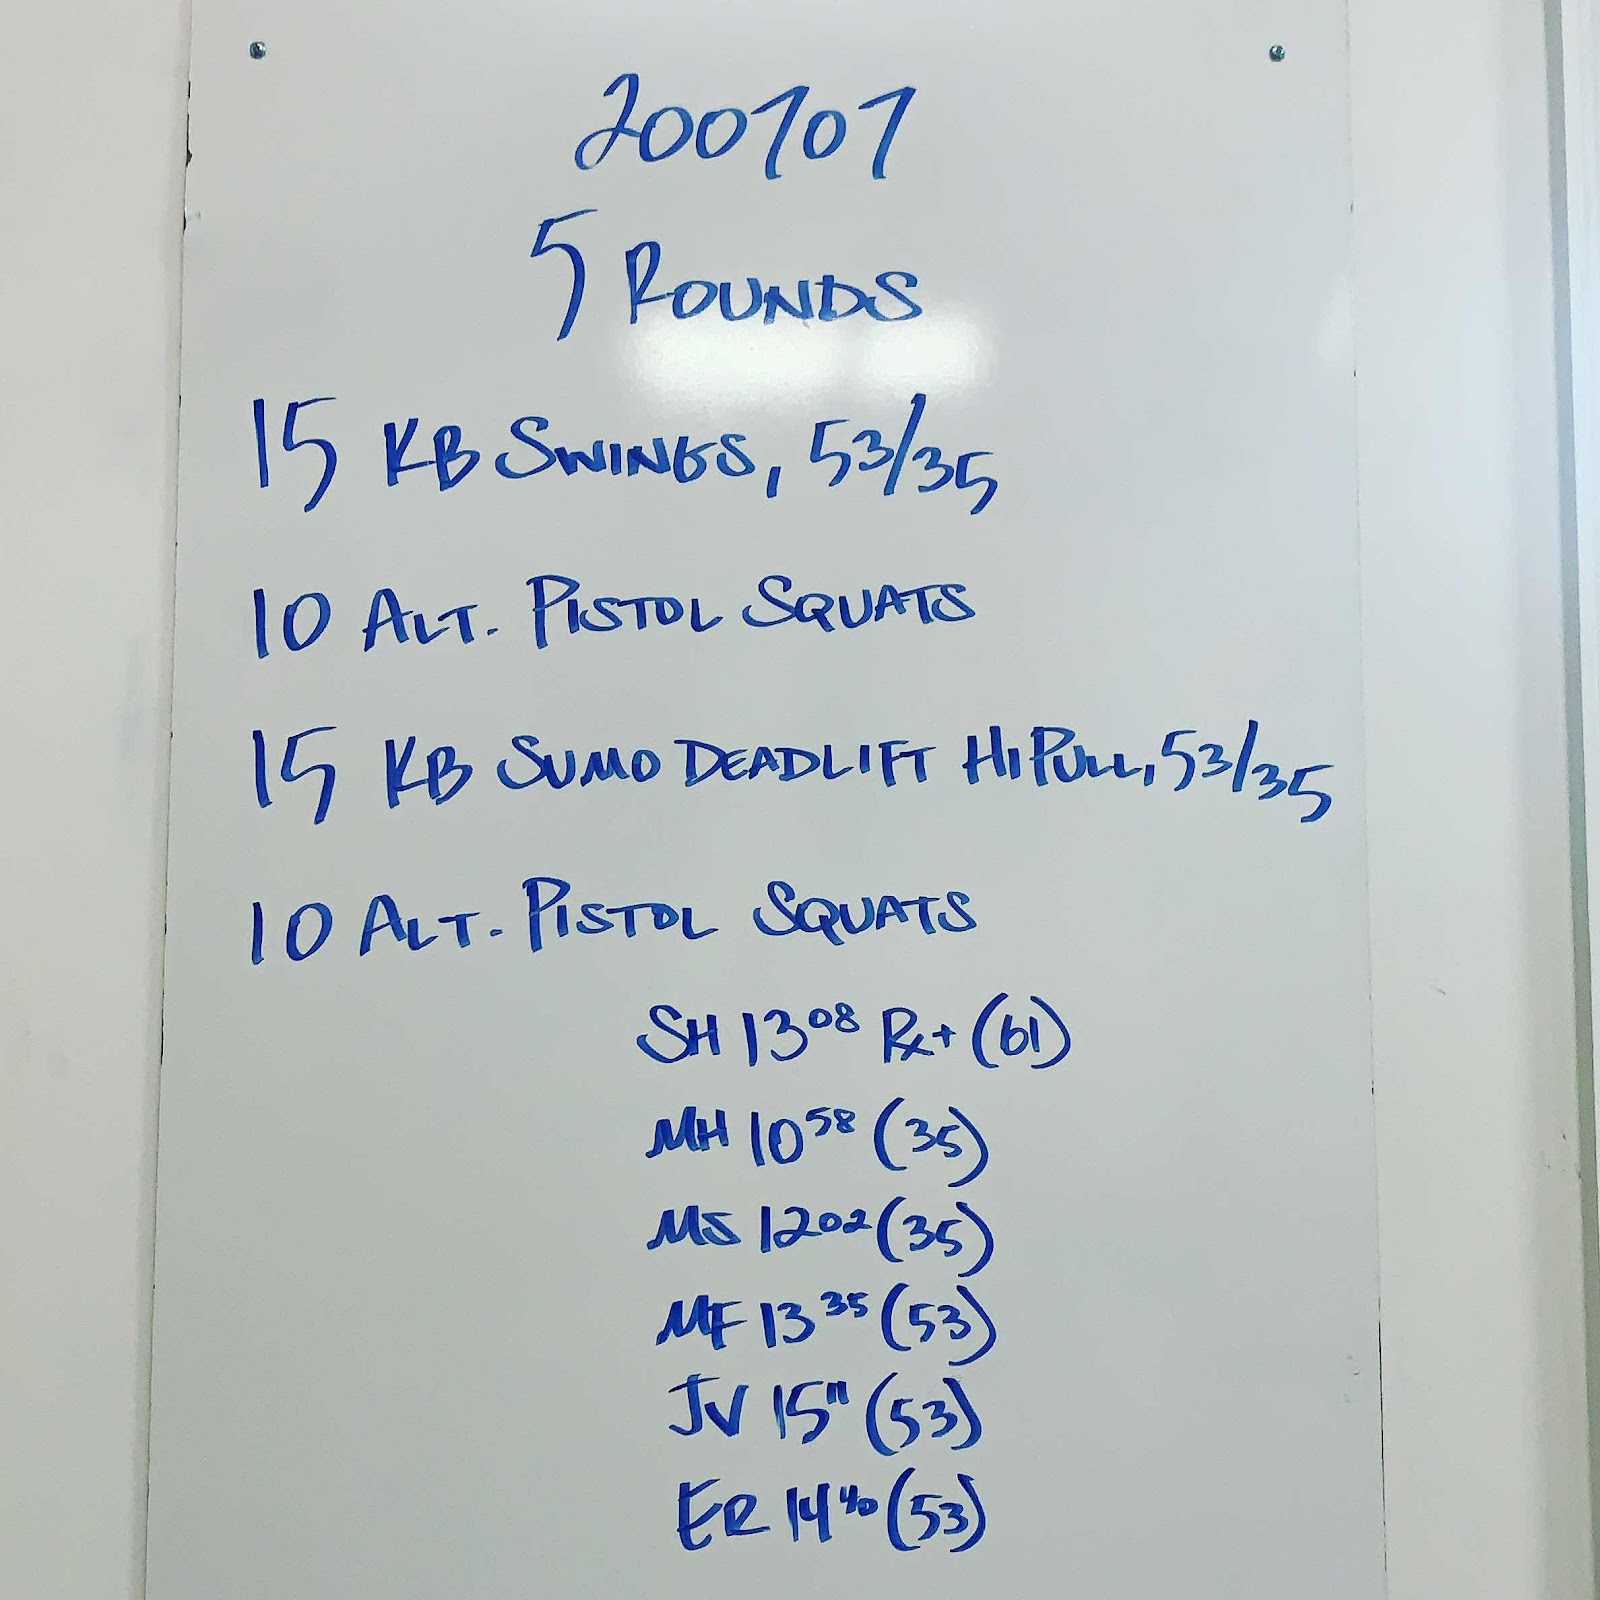 200707
5 ROUNDS
15 KB SWINGS, 53/35
10 ALT. PISTOL SQUATS
15 KB SUMO DEADLIFT HI PULL, 53/35
10 ALT. PISTOL SQUATS
SH 13 08 Rx+ (61)
MH 10 58 (35)
MS 12 02 (35)
MF 13 35 (53)
JV 15 11 (53)
ER 14 40 (53)